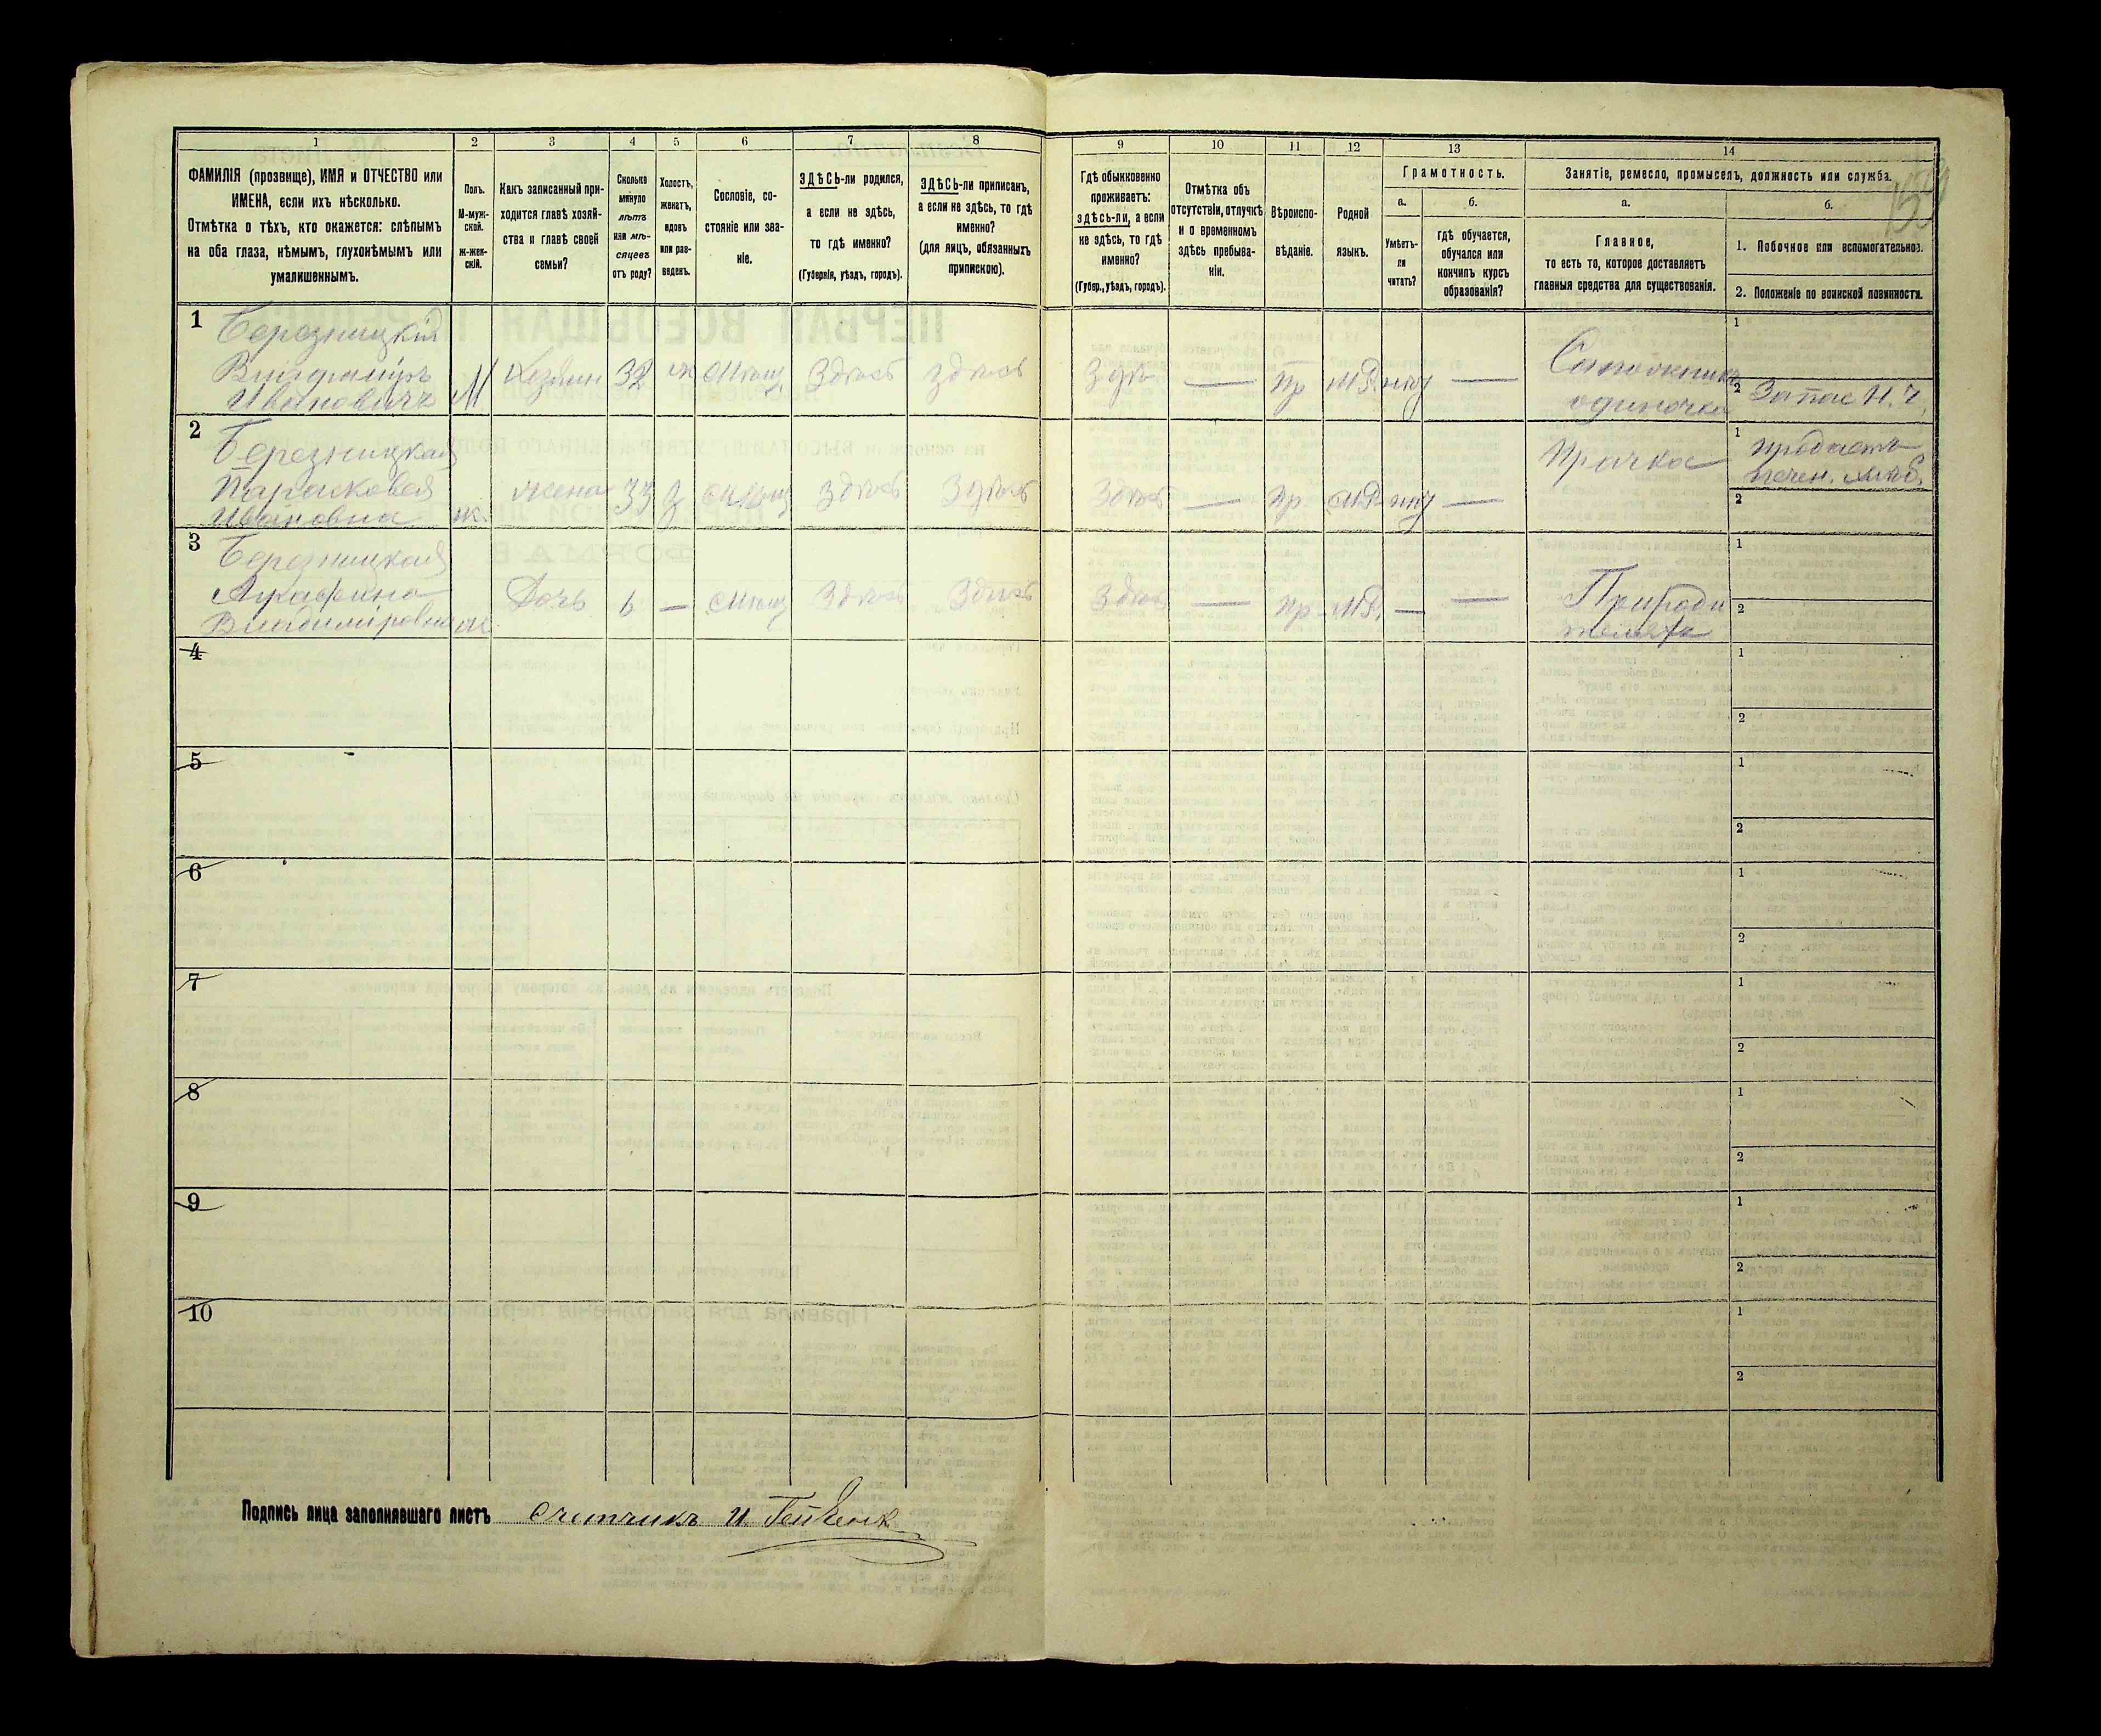 1 2 3 4 5 6 7 8 9 10 11 12 13 14
ФАМИЛІЯ (прозвище), ИМЯ и ОТЧЕСТВО или
ИМЕНА, если ихъ нѣсколько.
Отмѣтка о тѣхъ, кто окажется: слѣпымъ
на оба глаза, нѣмымъ, глухонѣмымъ или
умалишеннымъ.
Полъ.
М-муж-
ской.
Ж-жен-
скій.
Какъ записанный при-
ходится главѣ хозяй-
ства и главѣ своей
семьи?
Сколько
минуло
лѣтъ
или мѣ-
сяцевъ
отъ роду?
Холостъ,
женатъ,
вдовъ
или раз-
веденъ.
Сословіе, со-
стояніе или зва-
ніе.
ЗДѢСЬ-ли родился,
а если не здѣсь,
то гдѣ именно?
(Губернія, уѣздъ, городъ).
ЗДѢСЬ-ли приписанъ,
а если не здѣсь, то гдѣ
именно?
(для лицъ, обязанныхъ
припискою).
Гдѣ обыкновенно
проживаетъ:
здѣсь-ли, а если
не здѣсь, то гдѣ
именно?
(Губер., уѣздъ, городъ).
Отмѣтка объ
отсутствіи, отлучкѣ
и о временномъ
здѣсь пребыва-
ніи.
Вѣроиспо-
вѣданіе.
Родной
языкъ.
Грамотность.
а.
Умѣетъ-
ли
читать?
б.
гдѣ обучается,
обучался или
кончилъ курсъ
образованія?
Занятіе, ремесло, промыселъ, должность или служба.
а.
Главное,
то есть то, которое доставляетъ
главныя средства для существованія.
б.
1. Побочное или вспомогательное.
2. Положеніе по воинской повинности.
1 Березницкій
Владиміръ
Ивановичъ М Хозяинъ 32 ж Мѣщ Здѣсь здѣсь Здѣсь — пр — Сапожникъ
одиночка
1
2 Запас Н. Ч.
2 Березницкая
Парасковея
Ивановна ж. жена 33 З Мѣщ Здѣсь Здѣсь Здѣсь — пр. — Прачка
1 продаетъ
печен. хлѣб.
2
3 Березницкая
Аграфина
Владиміровна ж Дочь 6 — Мѣщ Здѣсь Здѣсь Здѣсь — пр — — При роди
теляхъ
1
2
4
1
2
5
1
2
6
1
2
7
1
2
8
1
2
9
1
2
10
1
2
Подпись лица заполнявшаго листъ Счетчикъ И.